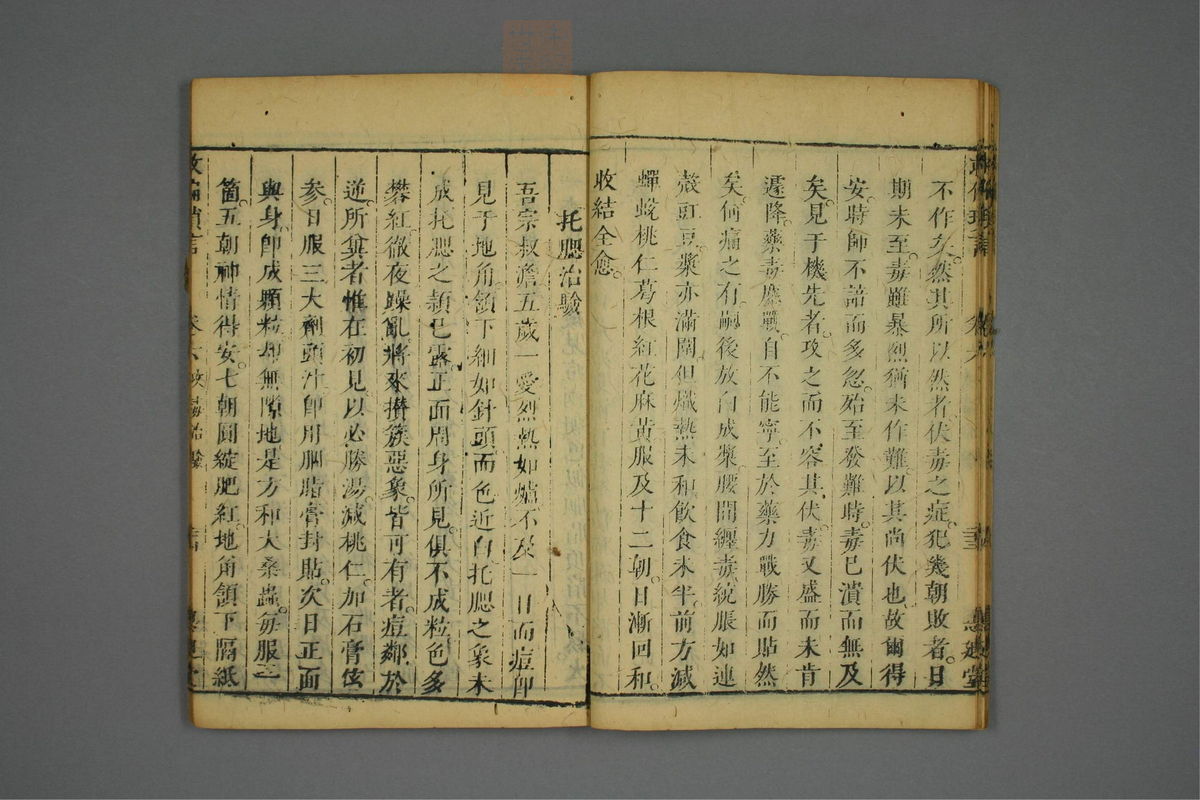 不作矣然其所以然者伏毒之症犯幾朝敗者日
期未至毒雖暴烈猶未作難以其尚伏也故爾得
安時師不諳而多忽殆至發難時毒已潰而無及
矣見于機先者攻之而不容其伏毒又盛而未肯
遽降藥毒鏖戰自不能寧至於藥力戰勝而貼然
矣何痛之有嗣後放白成漿腰間纏毒統脹如連
殼豇豆漿亦滿闊但熾熱未和飲食未半前方減
蟬蛻桃仁葛根紅花麻黃服及十二朝日漸回和
收結全愈
托腮治驗
吾宗叔澹五歲一愛烈熱如爐不及一日而痘即
見于地角頷下細如針頭而色近白托腮之象未
成托腮之顙已露正面周身所見俱不成粒色多
礬紅徹夜躁亂將來攢簇惡象皆可有者痘鄰於
逆所冀者惟在初見以必勝湯減桃仁加石膏伭
參日服三大劑頭汁即用胭脂膏封貼次日正面
與身即成顆粒却無隙地是方和大桑蟲每服三
箇五朝神情得安七朝圓綻肥紅地角頷下隔紙